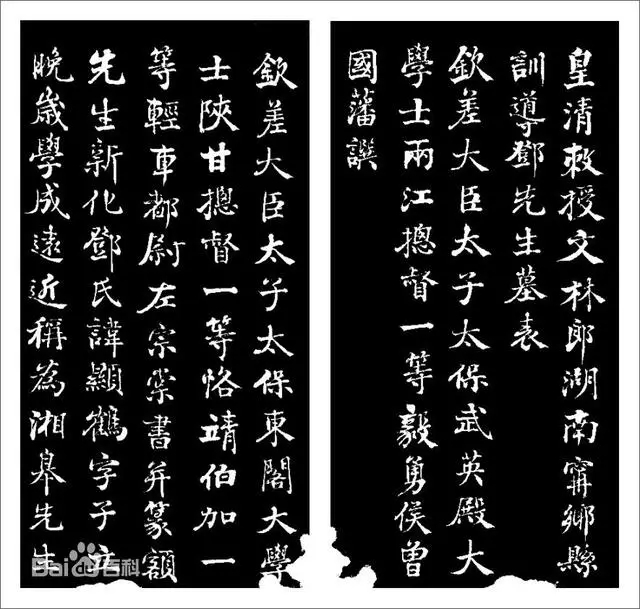 皇清敕授文林郎湖南甯鄉縣
訓導鄧先生墓表
欽差大臣太子太保武英殿大
學士兩江摠督一等毅勇侯曾
國藩譔
欽差大臣太子太保東閣大學
士陝甘摠督一等恪靖伯加一
等輕車都尉左宗棠書并篆額
先生新化鄧氏諱顯鶴字子立
晚歲學成遠近稱為湘皋先生
Bai百科